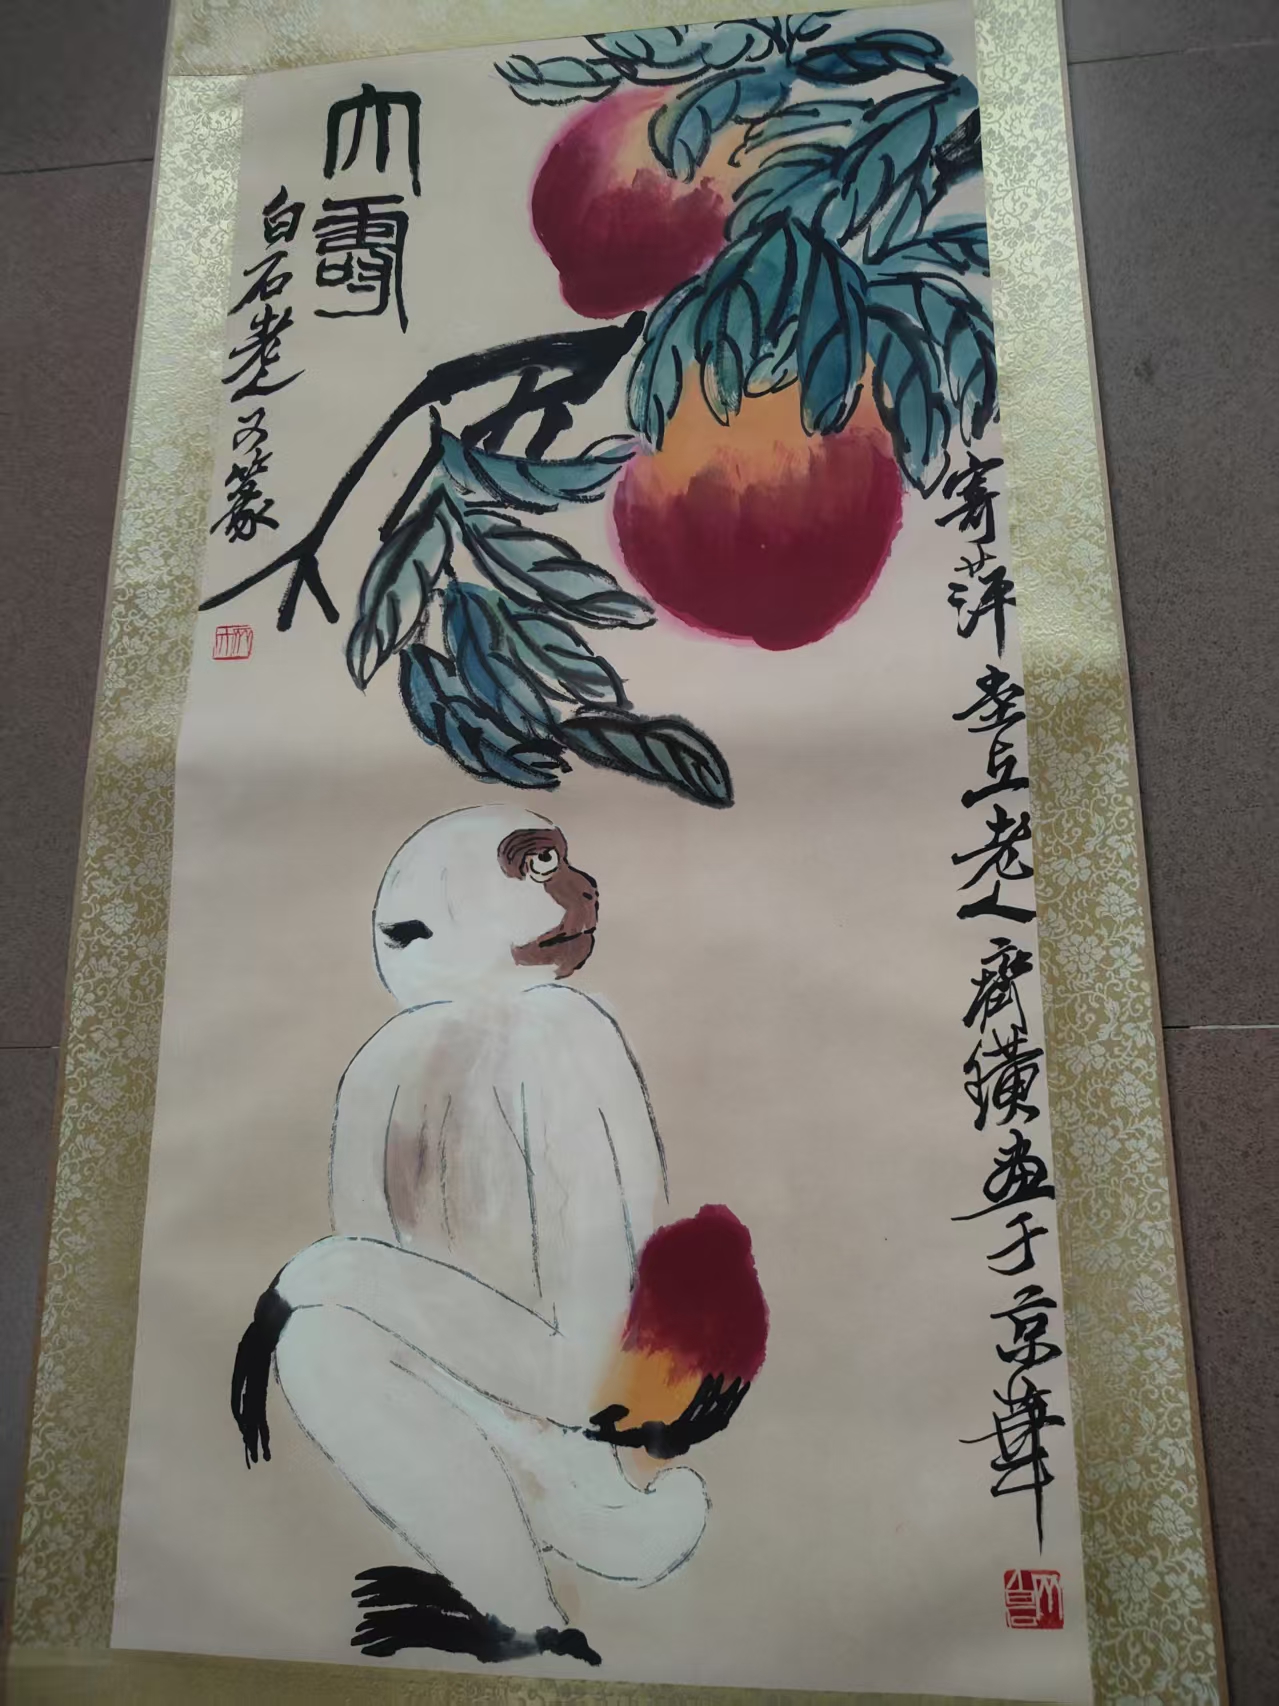 寄萍堂上老人齊璜畫于京華
大壽
白石老人又篆